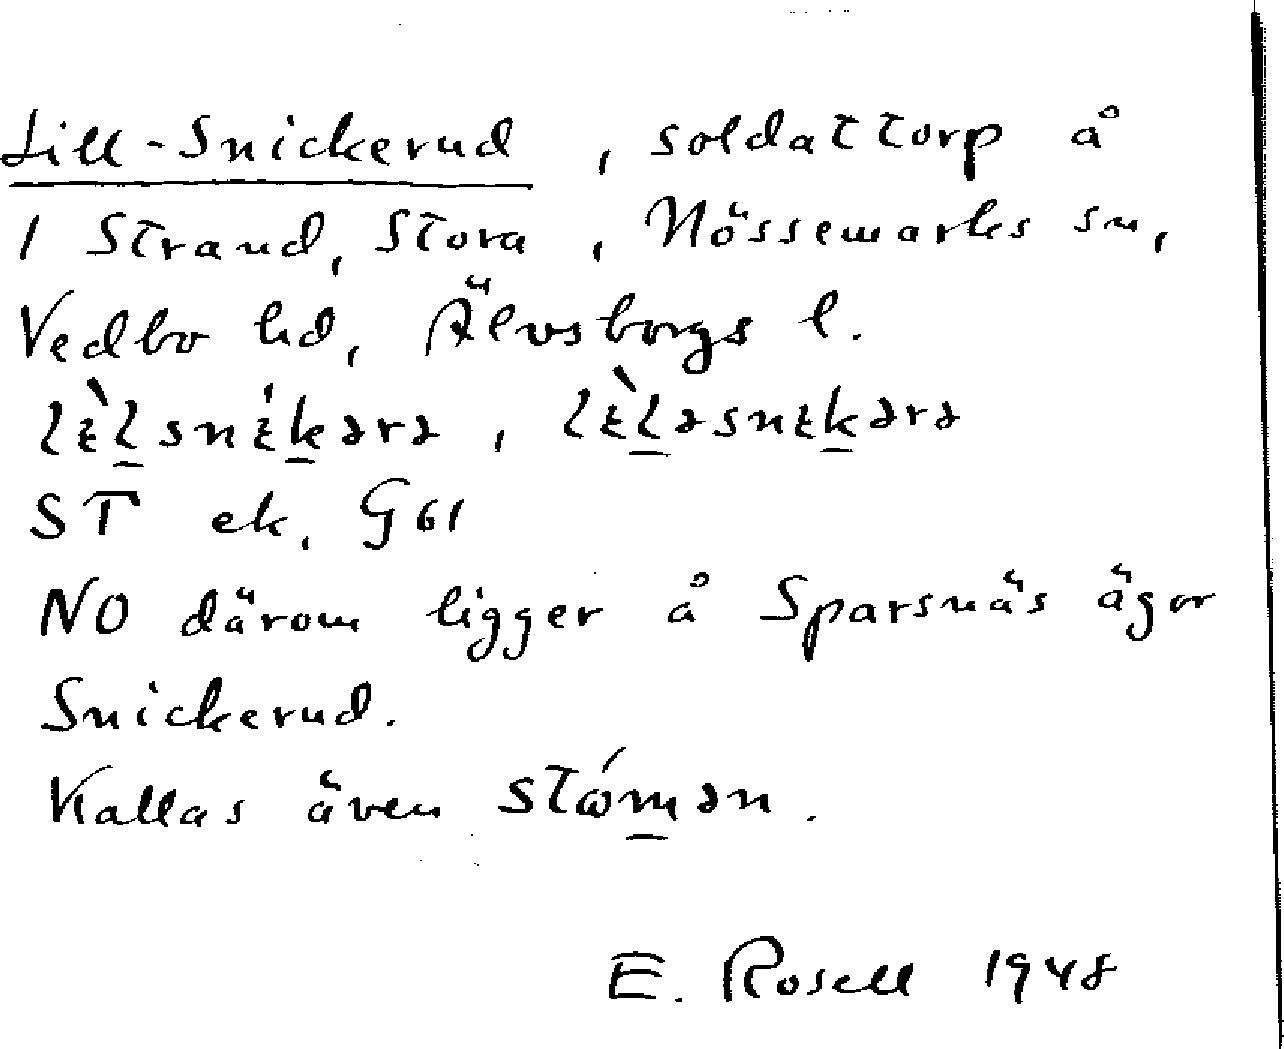 Lill-Snickerud, soldattorp å
1 Strand, Stora, Nössemarks sn,
Vedbo hd, Älvsborgs l.
ST ek. G61
NO därom ligger å Sparsnäs ägor
Snickerud.
Kallas även
E. Rosell 1948